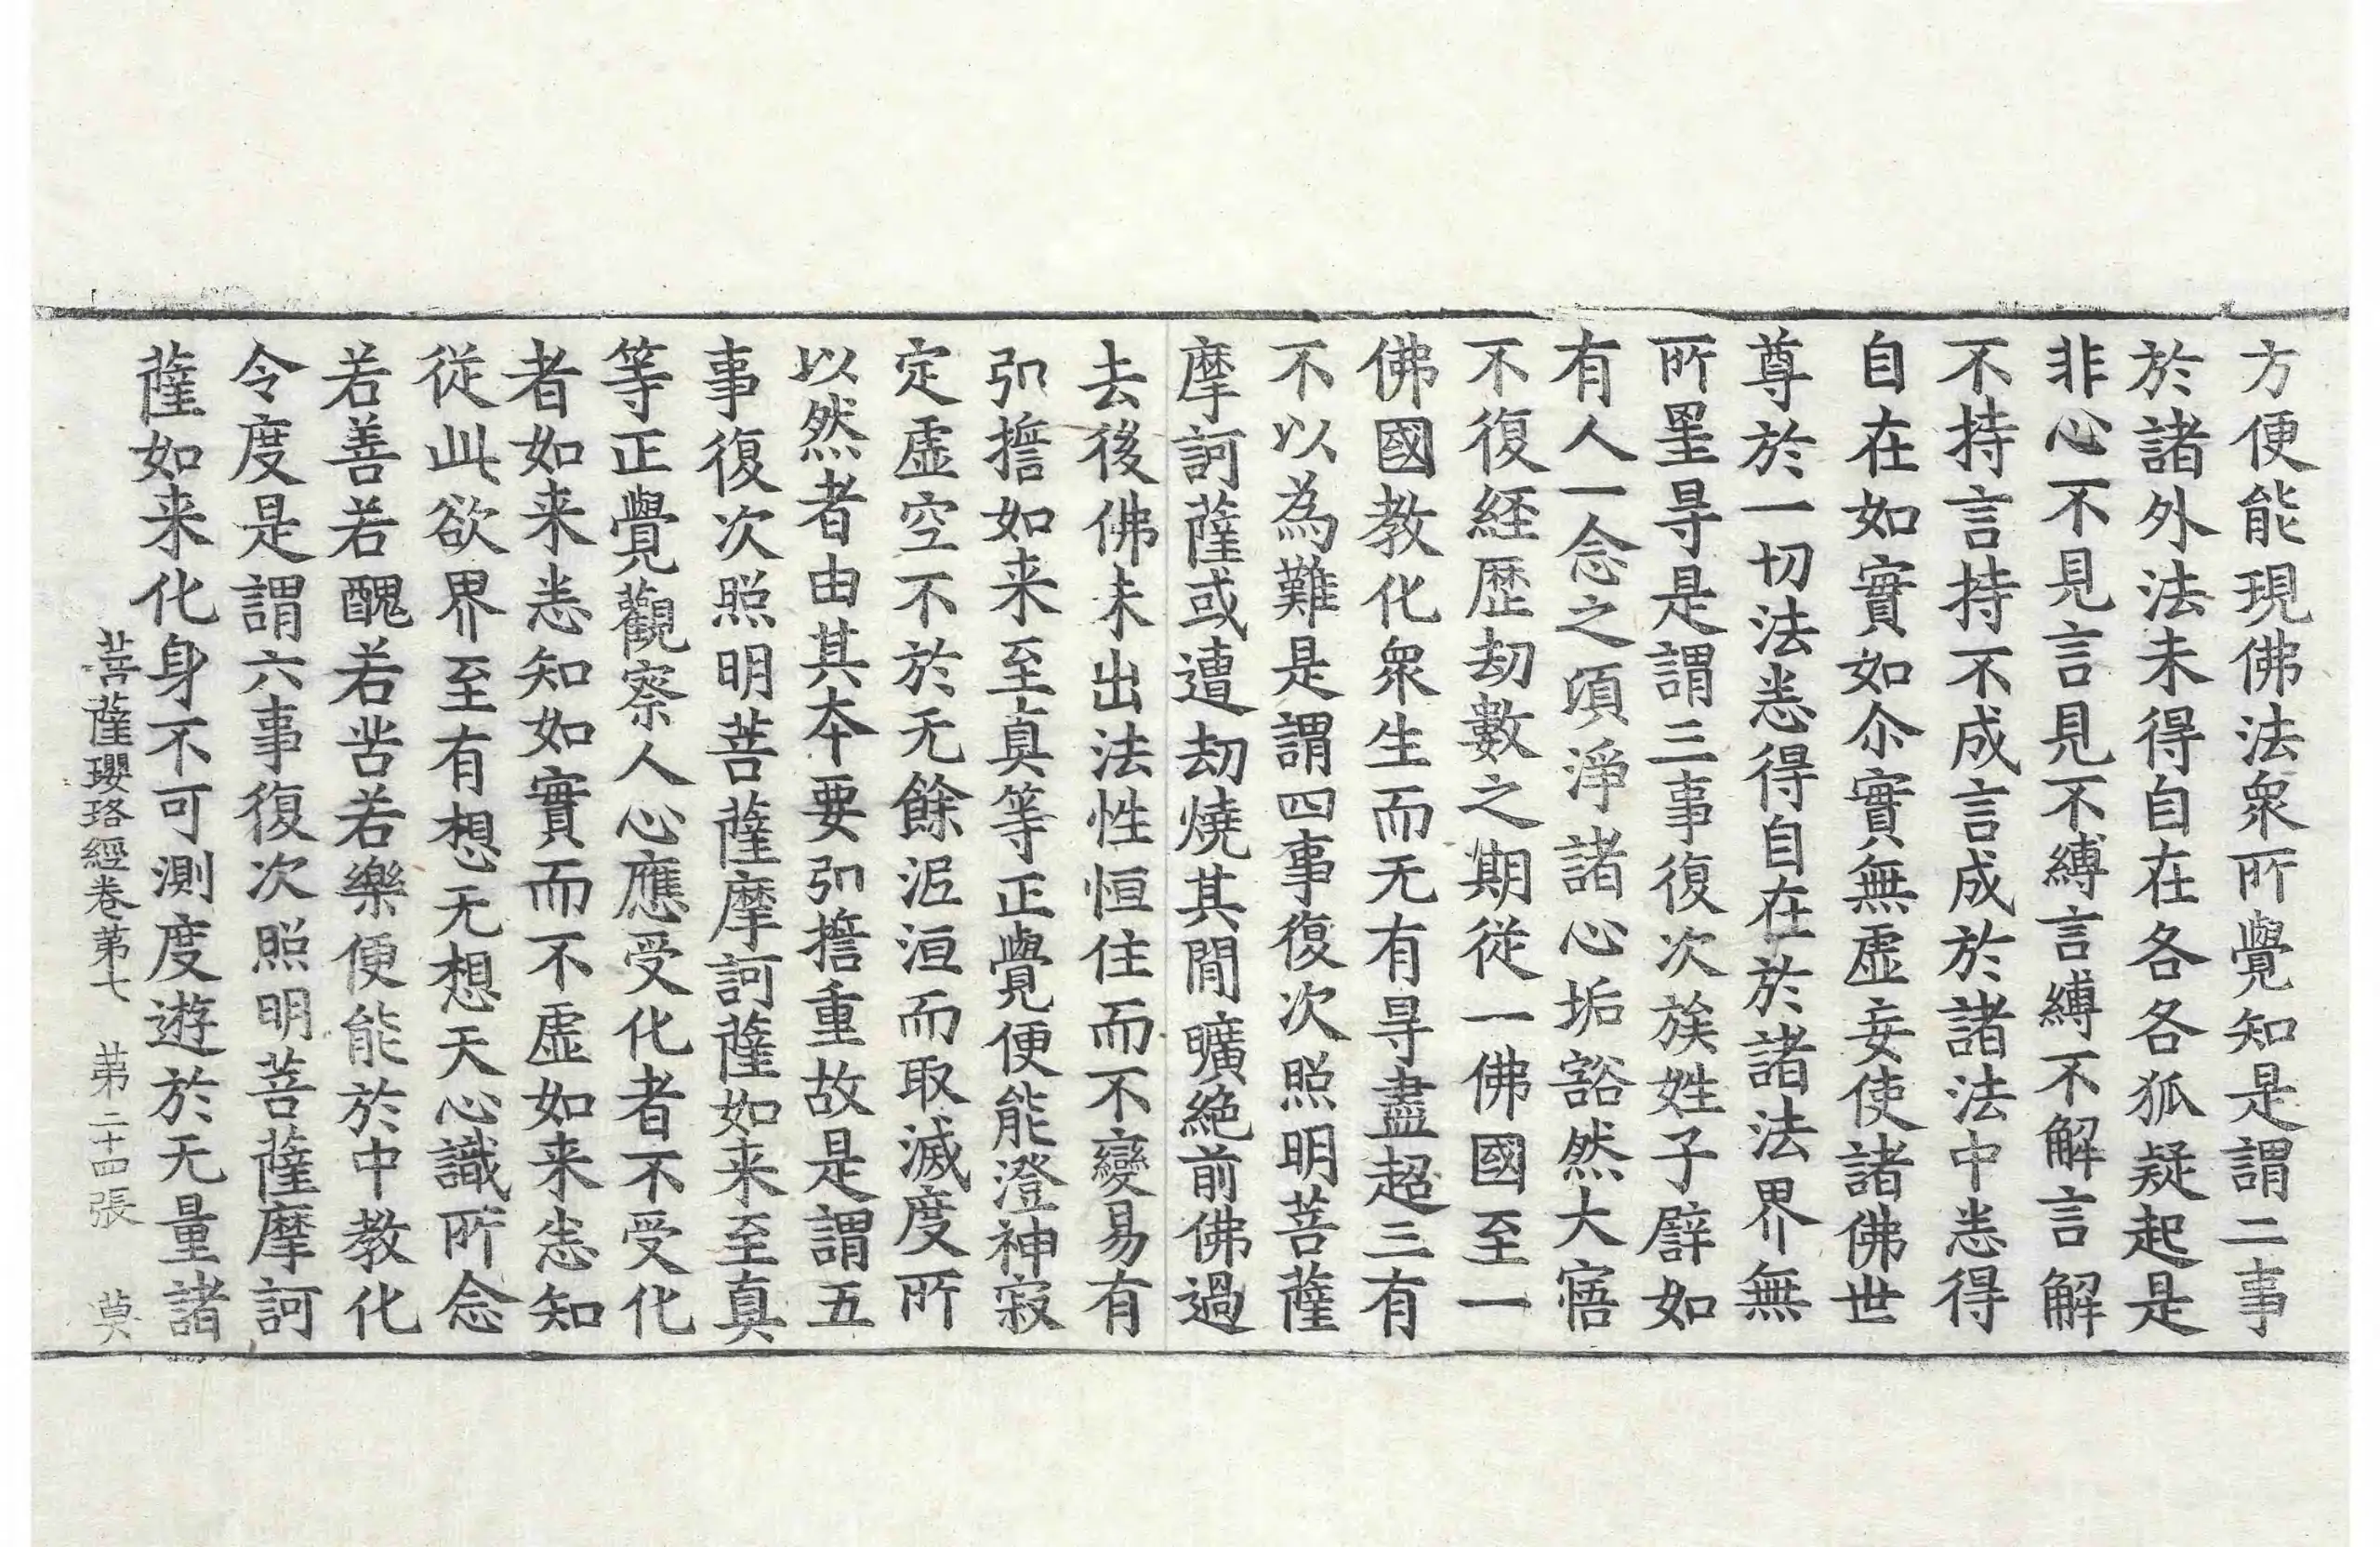 方便能現佛法衆所覺知是謂二事
於諸外法未得自在各各狐疑起是
非心不見言見不縛言縛不解言解
不持言持不成言成於諸法中悉得
自在如實如尒實無虛妄使諸佛世
尊於一切法悉得自在於諸法界無
所罣㝵是謂三事復次族姓子辟如
有人一念之頃淨諸心垢豁然大寤
不復經歷劫數之期從一佛國至一
佛國教化衆生而无有㝵盡超三有
不以為難是謂四事復次照明菩薩
摩訶薩或遭劫燒其閒曠絕前佛過
去後佛未出法性恒住而不變易有
弘擔如来至真等正覺便能澄神寂
定虛空不於无餘泥洹而取滅度所
以然者由其夲要弘擔重故是謂五
事復次照明菩薩摩訶薩如来至真
等正覺觀察人心應受化者不受化
者如来悉知如實而不虛如来悉知
從此欲界至有想无想天心識所念
若善若醜若苦若樂便能於中教化
令度是謂六事復次照明菩薩摩訶
薩如来化身不可測度遊於无量諸
菩薩瓔珞經卷第七 苐二十四張 莫